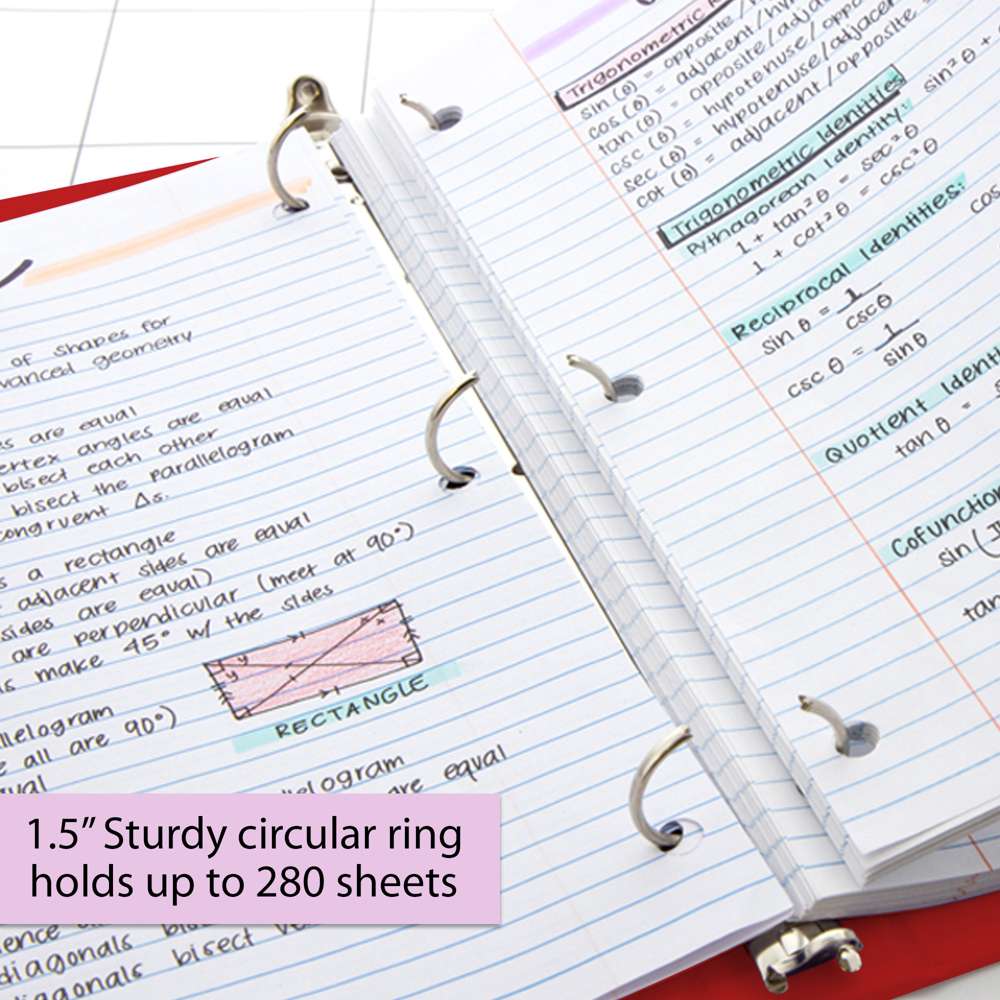 of shapes for
advanced geometry
are equal
vertex angles are equal
bisect each other
bisect the parallelogram
congruent Δs.
s a rectangle
adjacent sides are equal
sides are equal)
are perpendicular (meet at 90°)
make 45° w/ the sides
RECTANGLE
all are 90°)
are equal
diagonals
diagonals bisect
Trigonometric
sin (θ) = opposite /
cos (θ) = adjacent/
tan (θ) = opposite/adjacent
csc (θ) = hypotenuse/opposite
sec (θ) = hypotenuse/adjacent
cot (θ) = adjacent /opposite
Trigonometric Identities
Pythagorean Identity:
sin² θ +
1 + tan² θ = sec² θ
1 + cot² θ = csc² θ
Reciprocal Identities:
sin θ = 1
cscθ
csc θ = 1
sinθ
cos
Quotient Identi
tan θ =
Cofunction
sin(
tan
1.5” Sturdy circular ring
holds up to 280 sheets